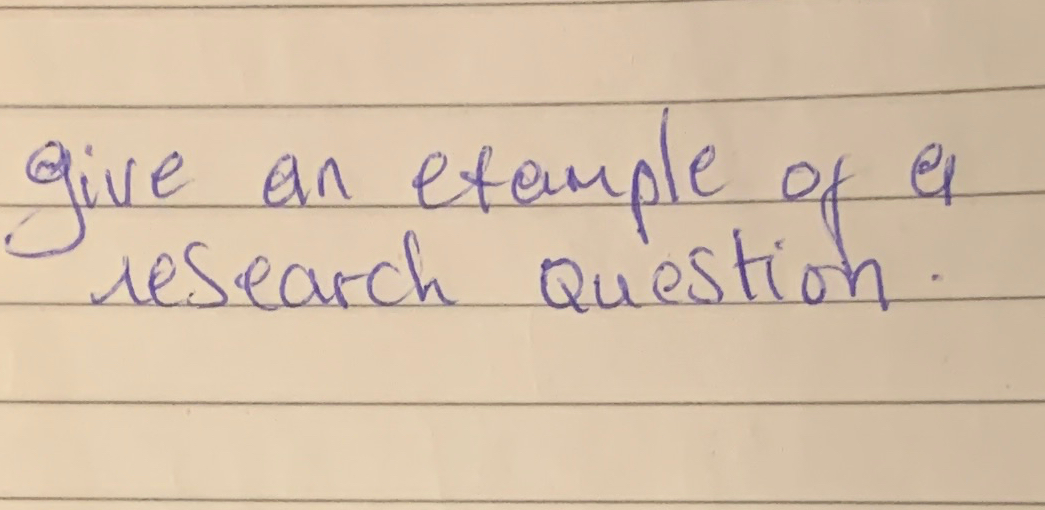 give an example of a
research question.